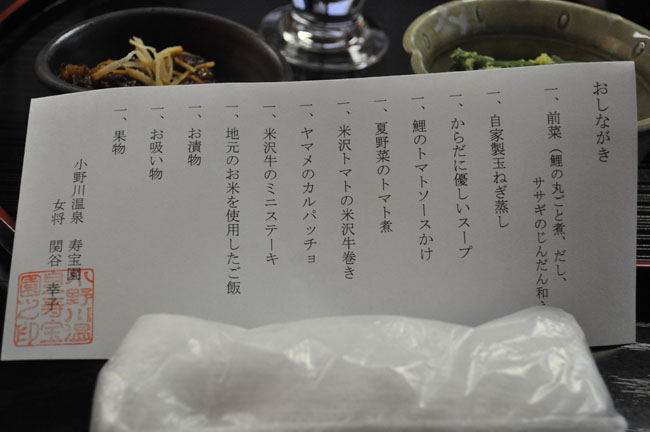 おしながき
一、前菜（鯉の丸ごと煮、だし、
ササギのじんだん和
一、自家製玉ねぎ蒸し
一、からだに優しいスープ
一、鯉のトマトソースかけ
一、夏野菜のトマト煮
一、米沢トマトの米沢牛巻き
一、ヤマメのカルパッチョ
一、米沢牛のミニステーキ
一、地元のお米を使用したご飯
一、お漬物
一、お吸い物
一、果物
小野川温泉　寿宝園
女将　関谷　幸子
小野川温
泉寿宝
園之印